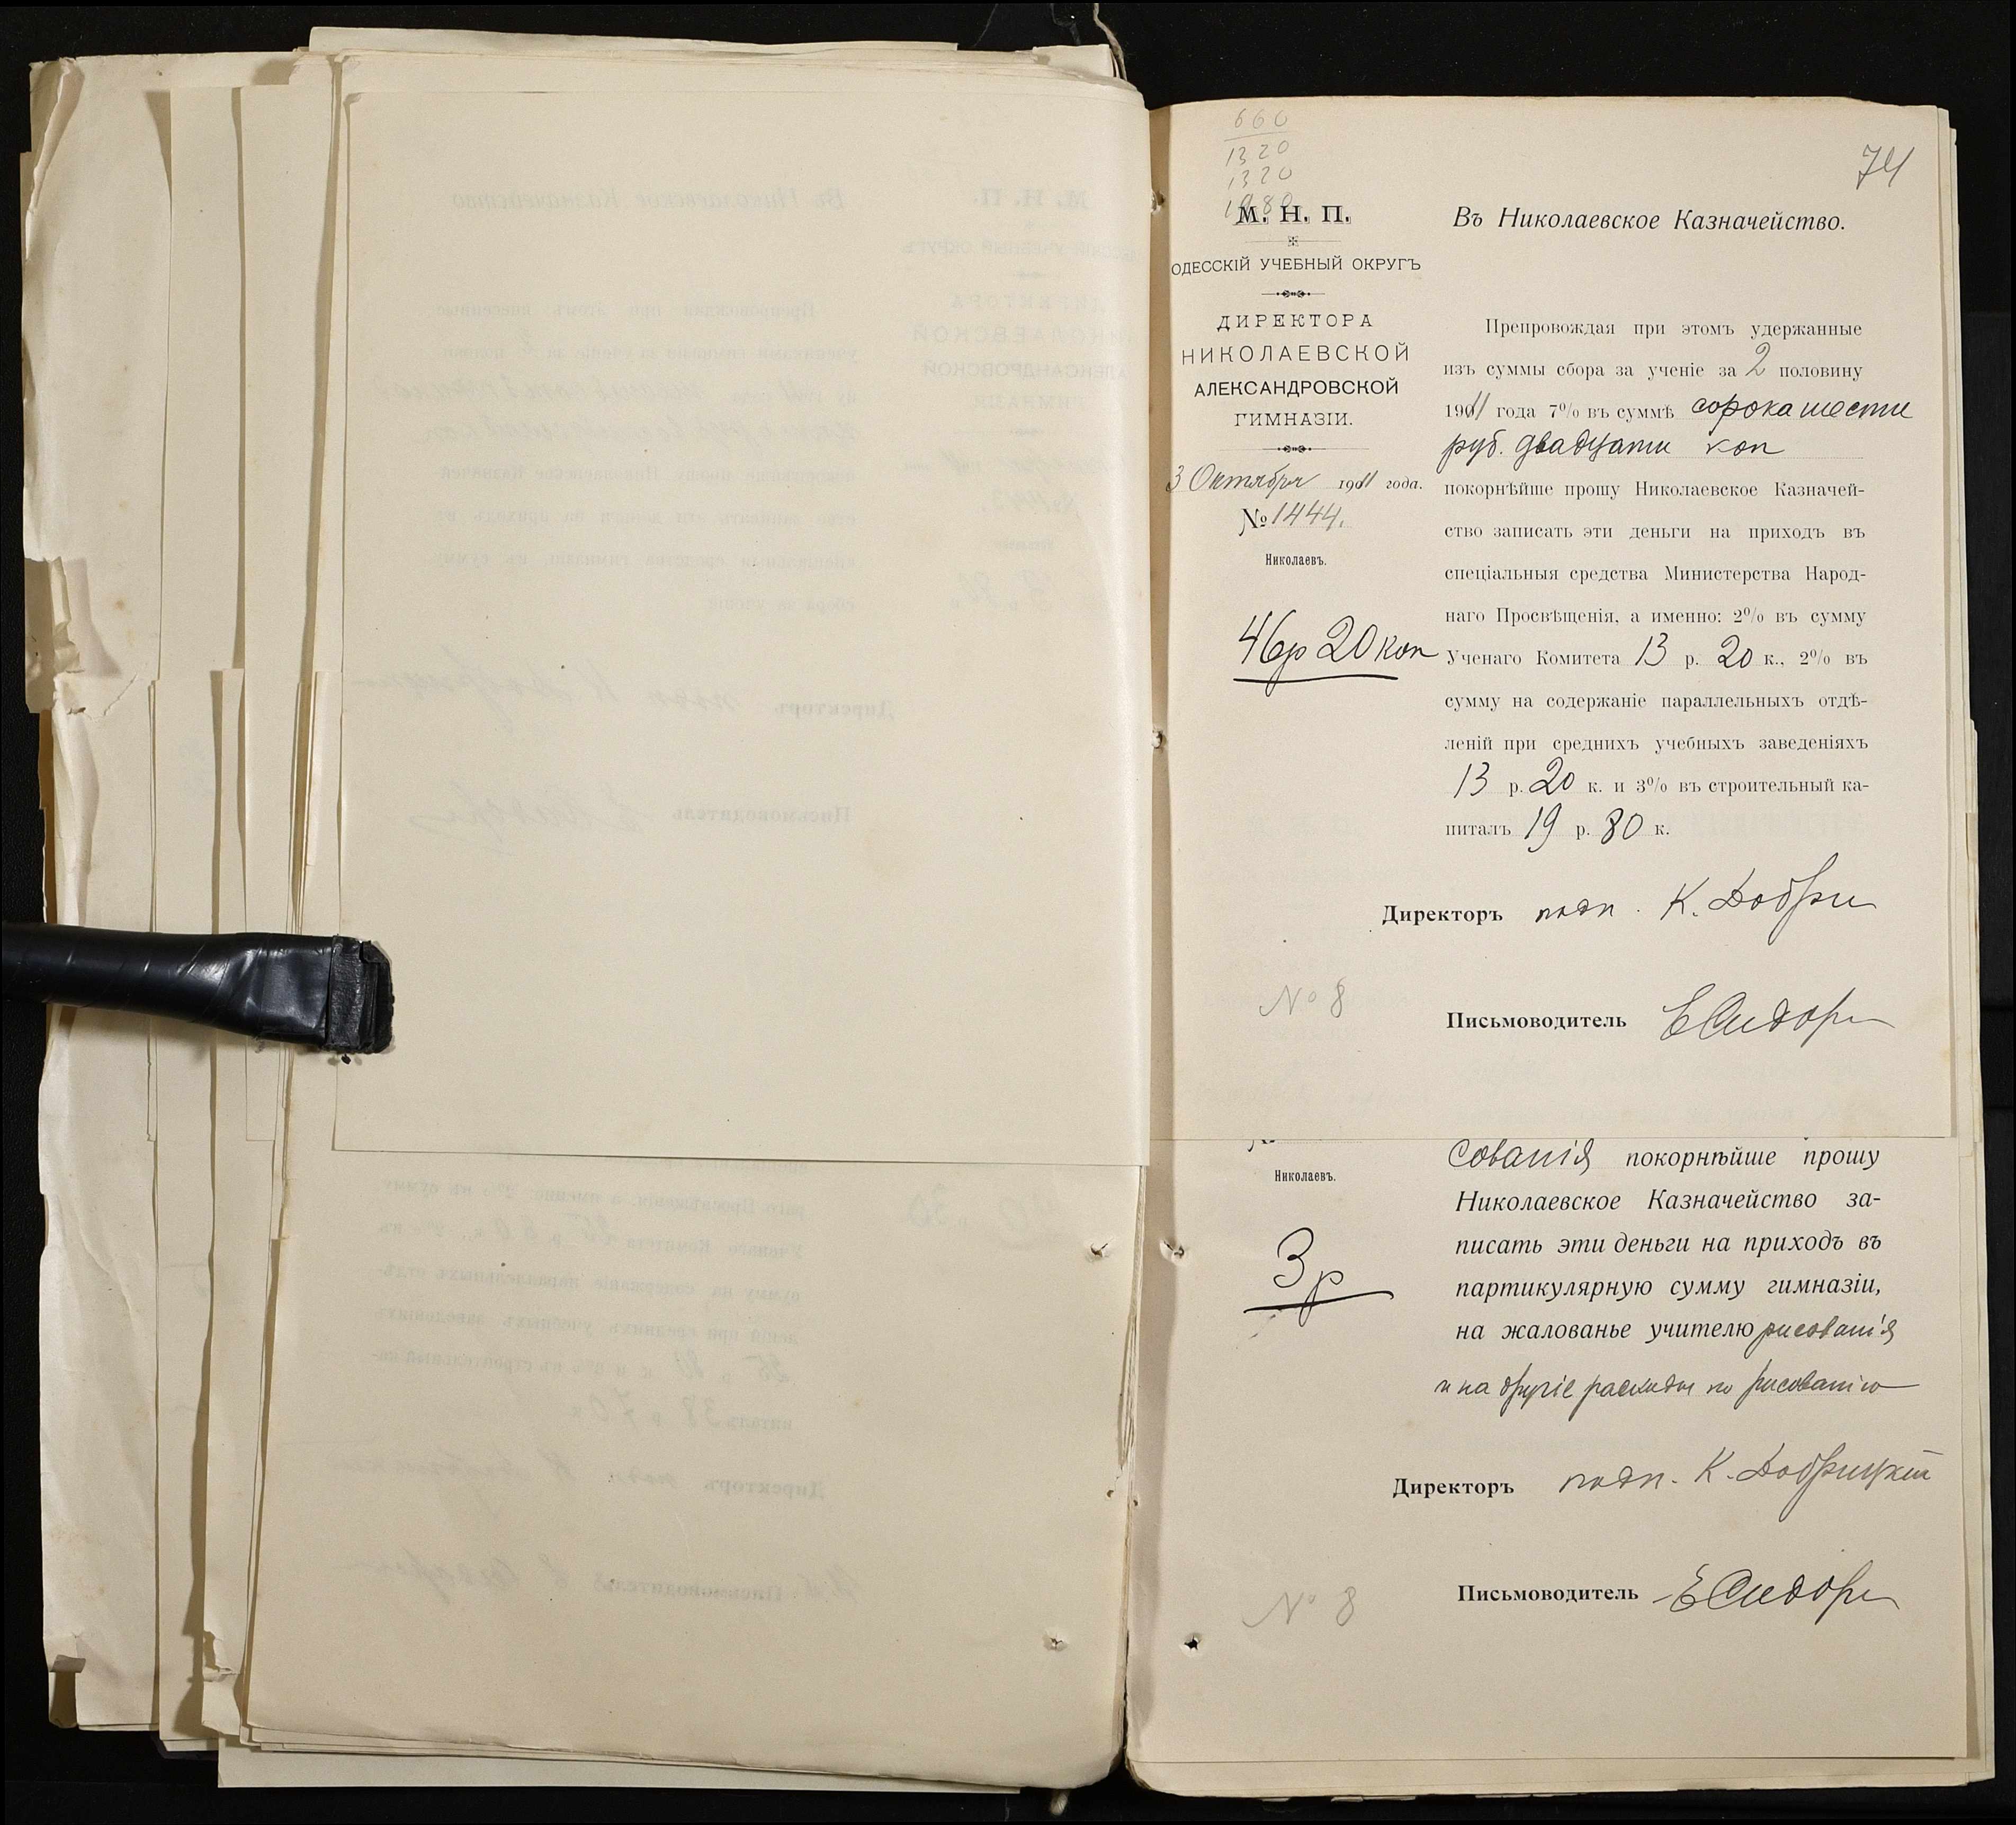 660
1320
1320
1980
74
М. Н. П.
ОДЕССКІЙ УЧЕБНЫЙ ОКРУГЪ
ДИРЕКТОРА
НИКОЛАЕВСКОЙ
АЛЕКСАНДРОВСКОЙ
ГИМНАЗІИ.
3 Октября 1911 года.
№ 1444.
Николаевъ.
46р 20 коп
№ 8
Въ Николаевское Казначейство.
Препровождая при этомъ удержанные
изъ суммы сбора за ученіе за 2 половину
1911 года 7% въ суммѣ сорока шести
руб. двадцати коп
покорнѣйше прошу Николаевское Казначей-
ство записать эти деньги на приходъ въ
спеціальныя средства Министерства Народ-
наго Просвѣщенія, а именно: 2% въ сумму
Ученаго Комитета 13 р. 20 к., 2% въ
сумму на содержаніе параллельныхъ отдѣ-
леній при среднихъ учебныхъ заведеніяхъ
13 р. 20 к. и 3% въ строительный ка-
питалъ 19 р. 80 к.
Директоръ подп. К. Добри
Письмоводитель Е Сидор
Николаевъ.
3 р
№ 8
сованія покорнѣйше прошу
Николаевское Казначейство за-
писать эти деньги на приходъ въ
партикулярную сумму гимназіи,
на жалованье учителю рисованія
и на другіе расходы по рисованію
Директоръ подп. К. Добрицкій
Письмоводитель Е Сидор